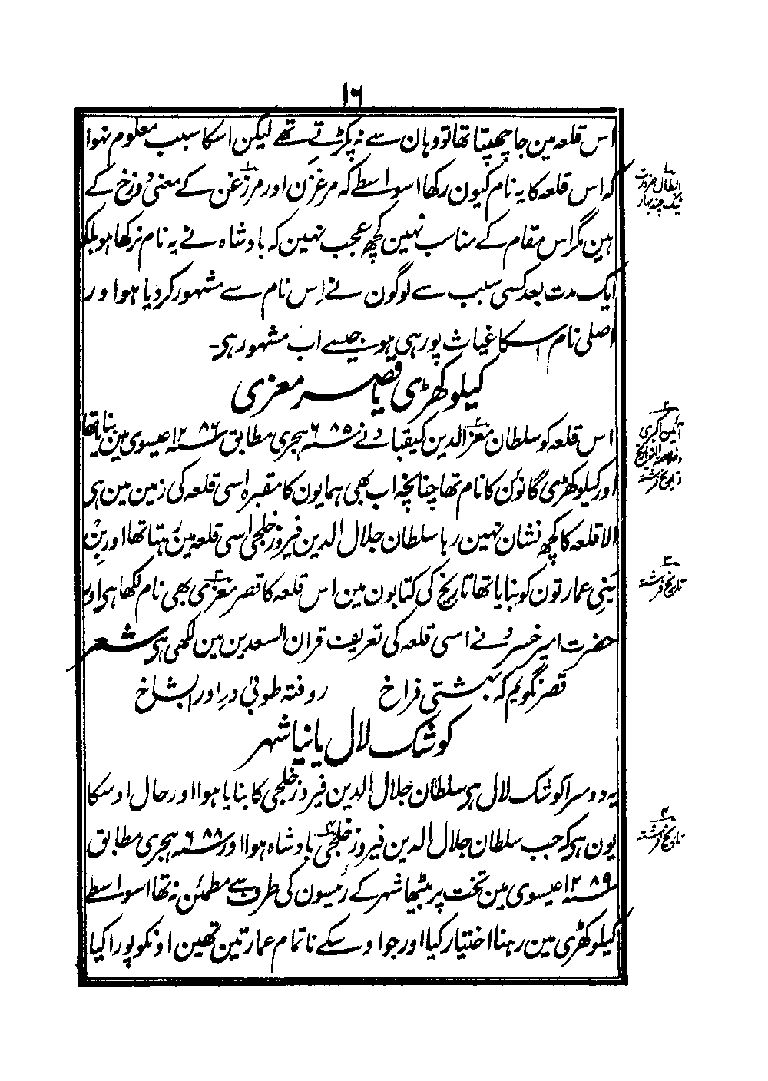 ۱۶
اس قلعہ مین جا چھپتا تھا تو وہان سے نہ پکڑتے تھے لیکن اسکا سبب معلوم نہوا
کہ اس قلعہ کا یہ نام کیون رکھا اسواسطے کہ مرغزن اور مرزغن کے معنی دوزخ کے
ہین مگر اس مقام کے مناسب نہین کچھ عجب نہین کہ بادشاہ نے یہ نام نرکھا ہو بلکہ
ایک مدت بعد کسی سبب سے لوگون نے اِس نام سے مشہور کردیا ہو اور
اصلی نام اسکا غیاث پور ہی ہو جیسے اب مشہور ہی۔
کیلوکھڑی یا قصر معزی
اس قلعہ کو سلطان معز الدین کیقباد نے سنہ ۶۸۵ ہجری مطابق سنہ ۱۲۸۶ عیسوی مین بنایا تھا
اور کیلوکھڑی گانون کا نام تھا چنانچہ اب بھی ہمایون کا مقبرہ اسی قلعہ کی زمین مین ہی
الا قلعہ کا کچھ نشان نہین رہا سلطان جلال الدین فیروز خلجی اسی قلعہ مین رہتا تھا اور بِن
بَنِی عمارتون کو بنایا تھا تاریخ کی کتابون مین اس قلعہ کا قصر معزی بھی نام لکھا ہی اور
حضرت امیر خسرو نے اسی قلعہ کی تعریف قران السعدین مین لکھی ہی شعر
قصر نگویم کہ بہشتی فراخ روفتہ طوبی در اورا بشاخ
کوشک لال یا نیا شہر
یہ دوسرا کوشک لال ہی سلطان جلال الدین فیروز خلجی کا بنایا ہوا اور حال اوسکا
یون ہی کہ جب سلطان جلال الدین فیروز خلجی بادشاہ ہوا اور سنہ ۶۸۸ ہجری مطابق
سنہ ۱۲۸۹ عیسوی مین تخت پر بیٹھا شہر کے رئیسون کی طرف سے مطمئن نہ تھا اسواسطے
کیلوکھڑی مین رہنا اختیار کیا اور جو اوسکے ناتمام عمارتین تھین اونکو پورا کیا
۱
ابطال ضرورت
ٹیک چند بہار
۲
آئین اکبری
و خلاصۃ التواریخ
تاریخ فرشتہ
۳
تاریخ فرشتہ
۴
تاریخ فرشتہ